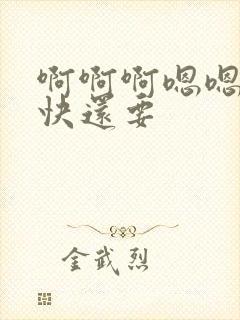 啊啊啊嗯嗯
快还要
金武烈